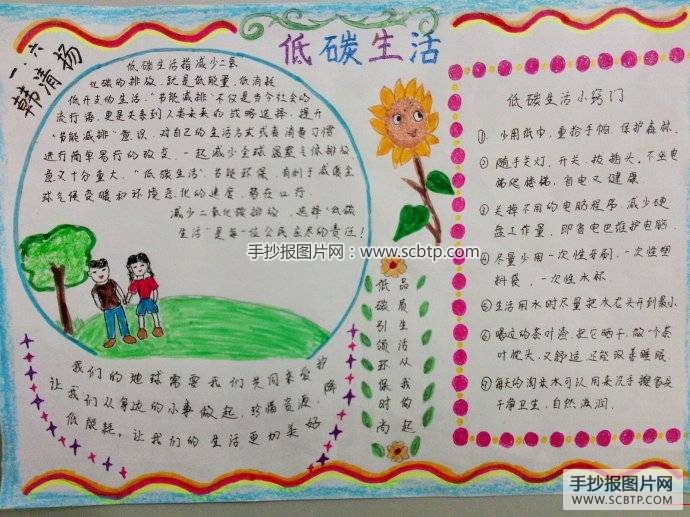 一.六
韩清杨
低碳生活
低碳生活指减少二氧
化碳的排放,就是低能量、低消耗
低开支的生活。"节能减排"不仅是当今社会的
流行语,更是关系到人类未来的战略选择,提升
"节能减排"意识,对自己的生活方式或者消费习惯
进行简单易行的改变,一起减少全球温室气体排放,
意义十分重大。"低碳生活"节能环保,有利于减缓全
球气候变暖和环境恶化的速度,势在必行。
减少二氧化碳排放,选择"低碳
生活"是每一位公民应尽的责任!
我们的地球需要我们共同来爱护
让我们从身边的小事做起,珍惜资源,降
低能耗,让我们的生活更加美好
低碳别领环保时尚
品质生活从我做起
低碳生活小窍门
① 少用纸巾,重拾手帕,保护森林
② 随手关灯、开关、拔插头,不坐电
梯爬楼梯,省电又健康
③ 关掉不用的电脑程序,减少硬
盘工作量,即省电也维护电脑.
④ 尽量少用一次性牙刷、一次性塑
料袋、一次性水杯
⑤ 生活用水时尽量把水龙头开到最小
⑥ 喝过的茶叶渣,把它晒干,做一个茶
叶枕头,又舒适,还能改善睡眠
⑦ 每天的淘米水可以用来洗手擦家具
干净卫生,自然滋润.
手抄报图片网:www.scbtp.com
手抄报图片网
WWW.SCBTP.COM